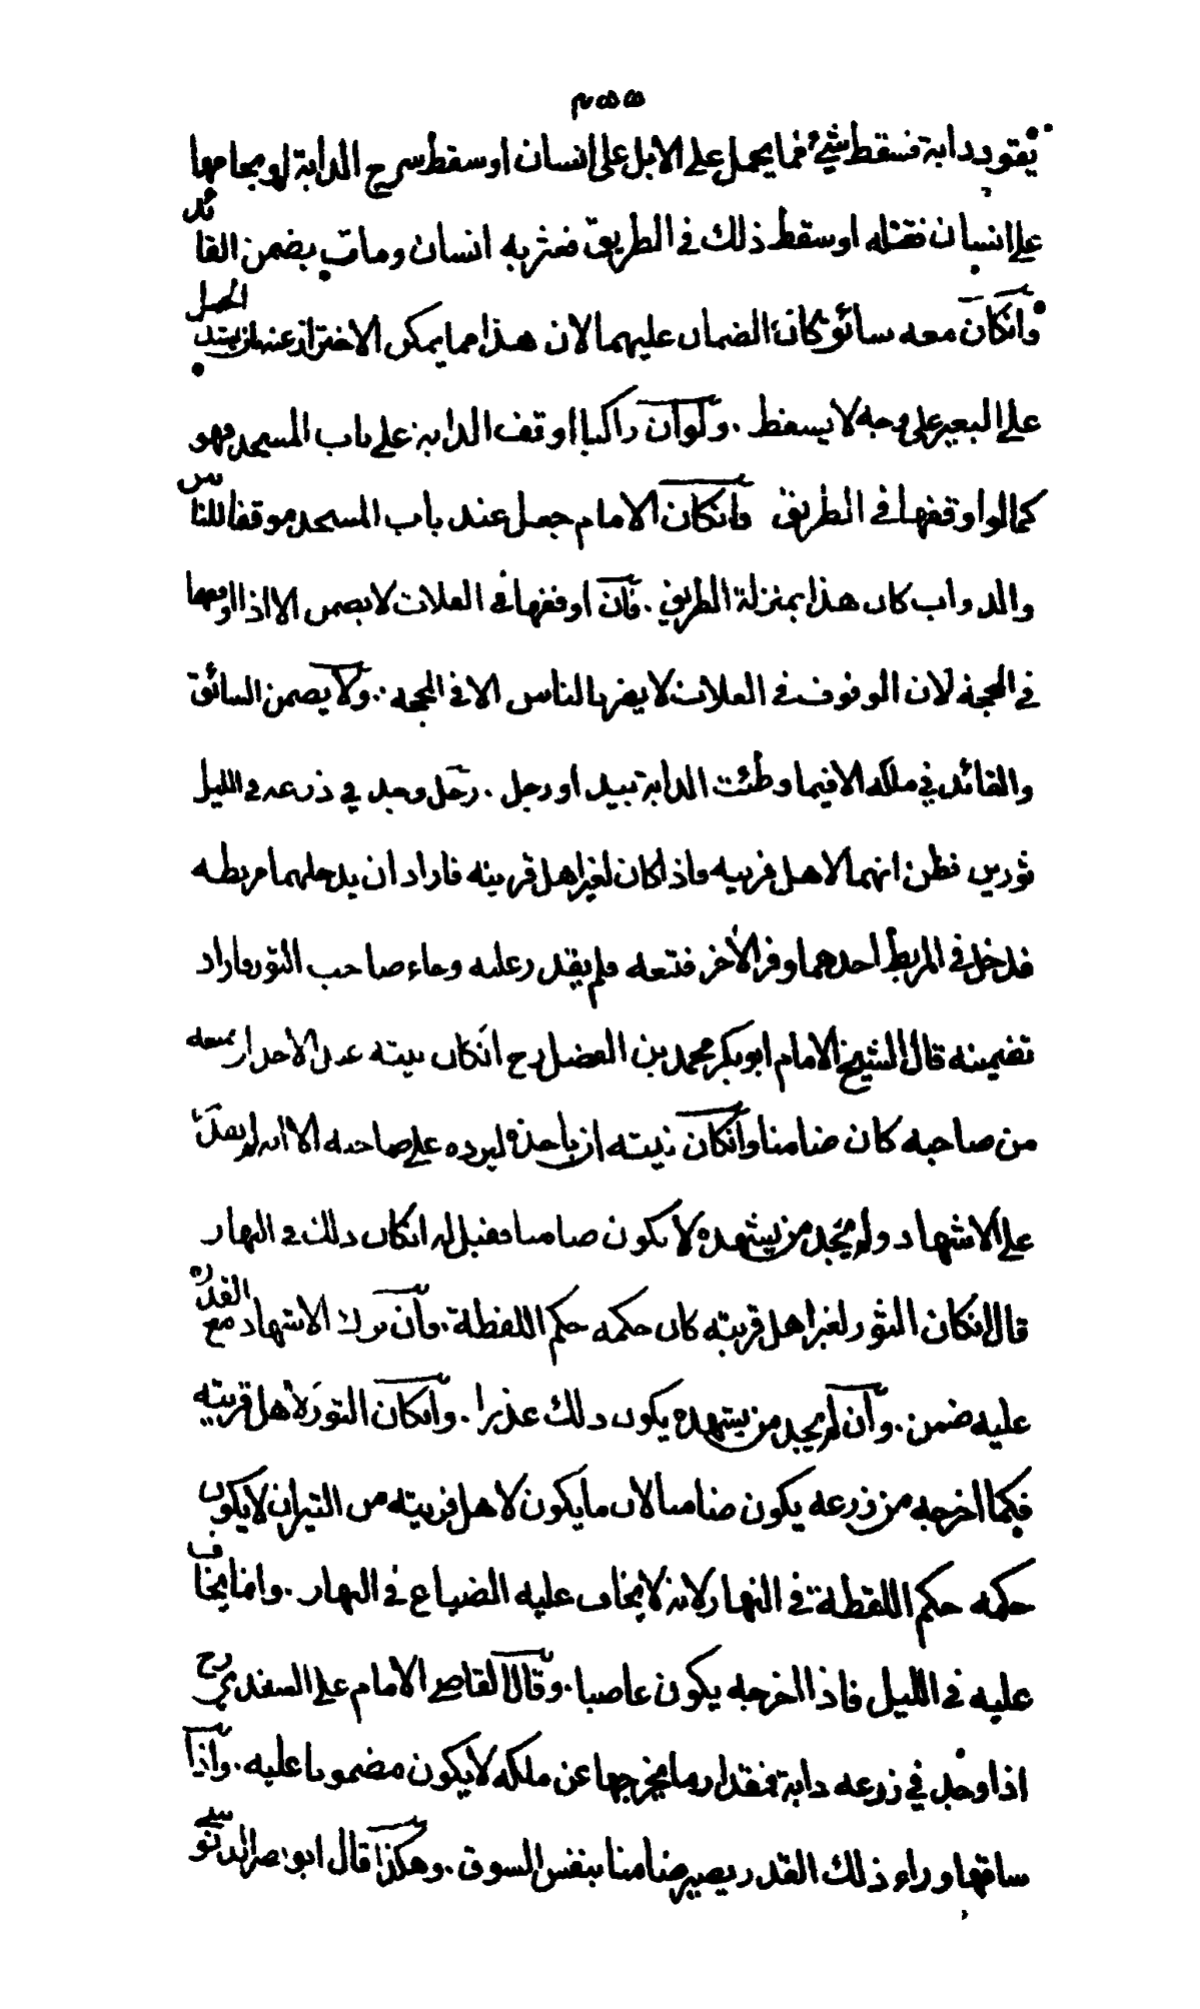 يقود دابة فسقط شيء مما يحمل على الابل على انسان او سقط سرج الدابة او لجامها
على انسان فقتله او سقط ذلك في الطريق فعثر به انسان ومات يضمن القائد
وانكان معه سائق كان الضمان عليهما لان هذا مما يمكن الاحتراز عنه بان يشد الحمل
على البعير على وجه لا يسقط . ولو ان راكبا اوقف الدابة على باب المسجد فهو
كما لو اوقفها في الطريق وانكان الامام جعل عند باب المسجد موقفا للناس
والدواب كان هذا بمنزلة الطريق . فان اوقفها في الفلات لا يضمن الا اذا اوقفها
في المحجة لان الوقوف في الفلات لا يضر بالناس الا في المحجة . ولا يضمن السائق
والقائد في ملكه الا فيما وطئت الدابة بيد او رجل . رجل وجد في زرعه في الليل
ثورين فظن انهما لاهل قريته فاذا كان لغير اهل قريته فاراد ان يدخلهما مربطه
فدخل في المربط احدهما وفر الآخر فتبعه فلم يقدر عليه وجاء صاحب الثور فاراد
تضمينه قال الشيخ الامام ابو بكر محمد بن الفضل رح انكان نيته عند الاخذ ان يمنعه
من صاحبه كان ضامنا وانكان نيته ان ياخذه ليرده على صاحبه الا انه لم يقدر
على الاشهاد ولم يجد من يشهده لا يكون ضامنا فقيل له انكان ذلك في النهار
قال انكان الثور لغير اهل قريته كان حكمه حكم اللقطة . وان ترك الاشهاد مع القدرة
عليه ضمن . وان لم يجد من يشهده يكون ذلك عذرا . وانكان الثور لاهل قريته
فكما اخرجه من زرعه يكون ضامنا لان ما يكون لاهل قريته من الثيران لا يكون
حكمه حكم اللقطة في النهار لانه لا يخاف عليه الضياع في النهار . وانما يخاف
عليه في الليل فاذا اخرجه يكون غاصبا . وقال القاضي الامام علي السغدي رح
اذا وجد في زرعه دابة فبقدر ما يخرجها عن ملكه لا يكون مضمونا عليه . واذا
ساقها وراء ذلك القدر يصير ضامنا بنفس السوق . وهكذا قال ابو نصر الدبوسي